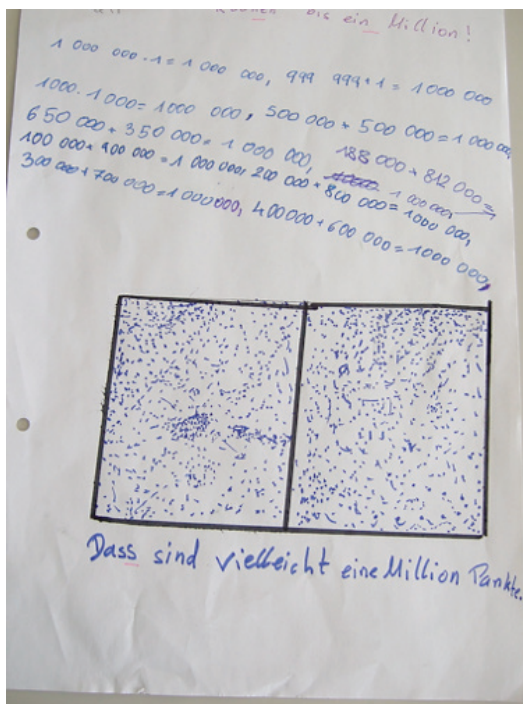 bis ein Million!
1 000 000 · 1 = 1 000 000, 999 999 + 1 = 1000 000
1000 · 1 000 = 1000 000, 500 000 + 500 000 = 1 000 000,
650 000 + 350 000 = 1 000 000, 188 000 + 812 000 =
1 000 000,
100 000 + 900 000 = 1 000 000, 200 000 + 800 000 = 1000 000,
300 000 + 700 000 = 1 000000, 400000 + 600 000 = 1000 000,
Dass sind vielleicht eine Million Pankte.